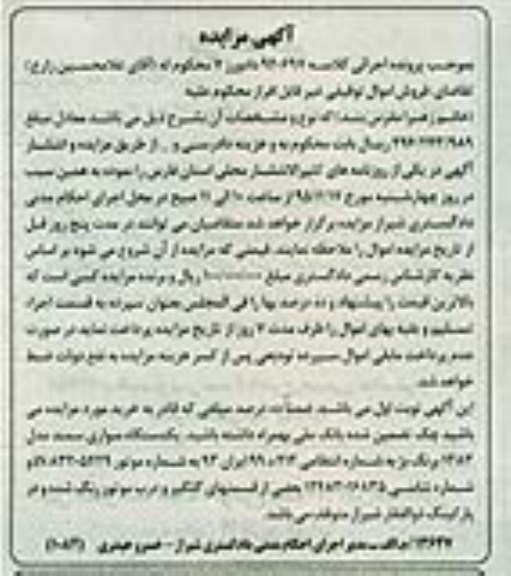 آگهی مزایده
بموجب پرونده اجرائی کلاسه دادورز ۷ محکوم له (آقای غلامحسین زارع)
تقاضای فروش اموال توقیفی غیر قابل افراز محکوم علیه
(خانم زهرا که نوع و مشخصات آن بشرح ذیل می باشد معادل مبلغ
ریال بابت محکوم به و هزینه دادرسی و .. از طریق مزایده و انتشار
آگهی در یکی از روزنامه های کثیرالانتشار محلی استان فارس را نموده به همین سبب
در روز چهارشنبه مورخ از ساعت ۱۰ الی ۱۱ صبح در محل اجرای احکام مدنی
دادگستری شیراز مزایده برگزار خواهد شد متقاضیان می توانند در مدت پنج روز قبل
از تاریخ مزایده اموال را ملاحظه نمایند. قیمتی که مزایده از آن شروع می شود بر اساس
نظریه کارشناس رسمی دادگستری مبلغ ریال و برنده مزایده کسی است که
بالاترین قیمت را پیشنهاد و ده درصد بها را فی المجلس بعنوان سپرده به قسمت اجرا
تسلیم و بقیه بهای اموال را ظرف مدت ۷ روز از تاریخ مزایده پرداخت نماید در صورت
عدم پرداخت مابقی اموال سپرده تودیعی پس از کسر هزینه مزایده به نفع دولت ضبط
خواهد شد.
این آگهی نوبت اول می باشد. ضمناً ده درصد مبلغی که قادر به خرید مورد مزایده می
باشید چک تضمین شده بانک ملی بهمراه داشته باشید. یکدستگاه سواری سمند مدل
۱۳۸۳ برنگ به شماره انتظامی ایران ۹۳ به شماره موتور و
شماره شاسی بعضی از قسمتهای گلگیر و درب موتور رنگ شده و در
پارکینگ ذوالفقار شیراز متوقف می باشد.
۱۳۶۴۷/ م الف ـ مدیر اجرای احکام مدنی دادگستری شیراز - خسرو حیدری